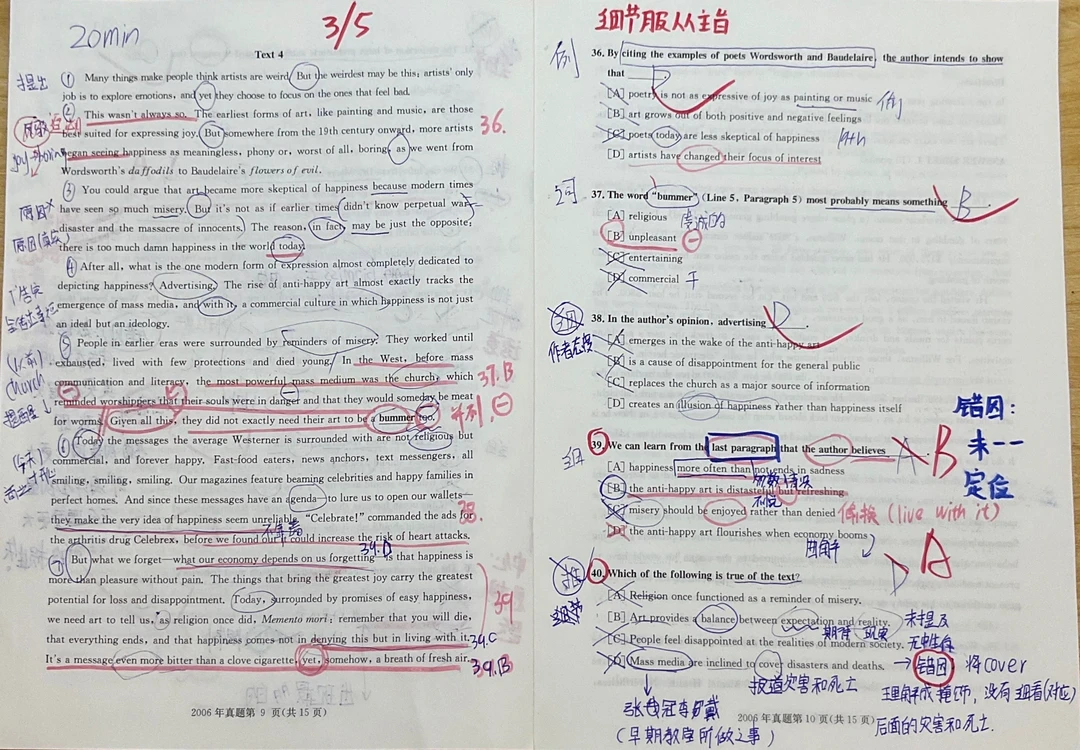 20min
3/5
Text 4
① Many things make people think artists are weird. But the weirdest may be this: artists' only
job is to explore emotions, and yet they choose to focus on the ones that feel bad.
② This wasn't always so. The earliest forms of art, like painting and music, are those
best suited for expressing joy. But somewhere from the 19th century onward, more artists
began seeing happiness as meaningless, phony or, worst of all, boring, as we went from
Wordsworth's daffodils to Baudelaire's flowers of evil.
36.
③ You could argue that art became more skeptical of happiness because modern times
have seen so much misery. But it's not as if earlier times didn't know perpetual war,
disaster and the massacre of innocents. The reason, in fact, may be just the opposite:
there is too much damn happiness in the world today.
原因×
④ After all, what is the one modern form of expression almost completely dedicated to
depicting happiness? Advertising. The rise of anti-happy art almost exactly tracks the
emergence of mass media, and with it, a commercial culture in which happiness is not just
an ideal but an ideology.
⑤ People in earlier eras were surrounded by reminders of misery. They worked until
exhausted, lived with few protections and died young. In the West, before mass
communication and literacy, the most powerful mass medium was the church, which
reminded worshippers that their souls were in danger and that they would someday be meat
for worms. Given all this, they did not exactly need their art to be a bummer too.
church
37.B
并列
⑥ Today the messages the average Westerner is surrounded with are not religious but
commercial, and forever happy. Fast-food eaters, news anchors, text messengers, all
smiling, smiling, smiling. Our magazines feature beaming celebrities and happy families in
perfect homes. And since these messages have an agenda—to lure us to open our wallets—
they make the very idea of happiness seem unreliable. "Celebrate!" commanded the ads for
the arthritis drug Celebrex, before we found out it could increase the risk of heart attacks.
不可靠
38.
39.D
⑦ But what we forget—what our economy depends on us forgetting—is that happiness is
more than pleasure without pain. The things that bring the greatest joy carry the greatest
potential for loss and disappointment. Today, surrounded by promises of easy happiness,
we need art to tell us, as religion once did, Memento mori: remember that you will die,
that everything ends, and that happiness comes not in denying this but in living with it.
It's a message even more bitter than a clove cigarette, yet, somehow, a breath of fresh air.
39
39.C
39.B
2006 年真题第 9 页(共 15 页)
细节服从主旨
例
36. By citing the examples of poets Wordsworth and Baudelaire, the author intends to show
that D.
[A] poetry is not as expressive of joy as painting or music
[B] art grows out of both positive and negative feelings
[C] poets today are less skeptical of happiness
19th
[D] artists have changed their focus of interest
词
37. The word "bummer" (Line 5, Paragraph 5) most probably means something B.
[A] religious 虔诚的
[B] unpleasant
[C] entertaining
[D] commercial
细
作者态度
38. In the author's opinion, advertising D.
[A] emerges in the wake of the anti-happy art
[B] is a cause of disappointment for the general public
[C] replaces the church as a major source of information
[D] creates an illusion of happiness rather than happiness itself
细
39. We can learn from the last paragraph that the author believes A B
[A] happiness more often than not ends in sadness
多数情况
[B] the anti-happy art is distasteful but refreshing
[C] misery should be enjoyed rather than denied 偷换 (live with it)
[D] the anti-happy art flourishes when economy booms
错因:
未一一
定位
细节
40. Which of the following is true of the text? D A
[A] Religion once functioned as a reminder of misery.
[B] Art provides a balance between expectation and reality.
未提及
期待 现实
[C] People feel disappointed at the realities of modern society.
[D] Mass media are inclined to cover disasters and deaths.
报道灾害和死亡
→错因: 将cover
理解成掩饰, 没有细看(对应)
后面的灾害和死亡.
张冠李戴
(早期教堂所做之事)
2006 年真题第 10 页(共 15 页)